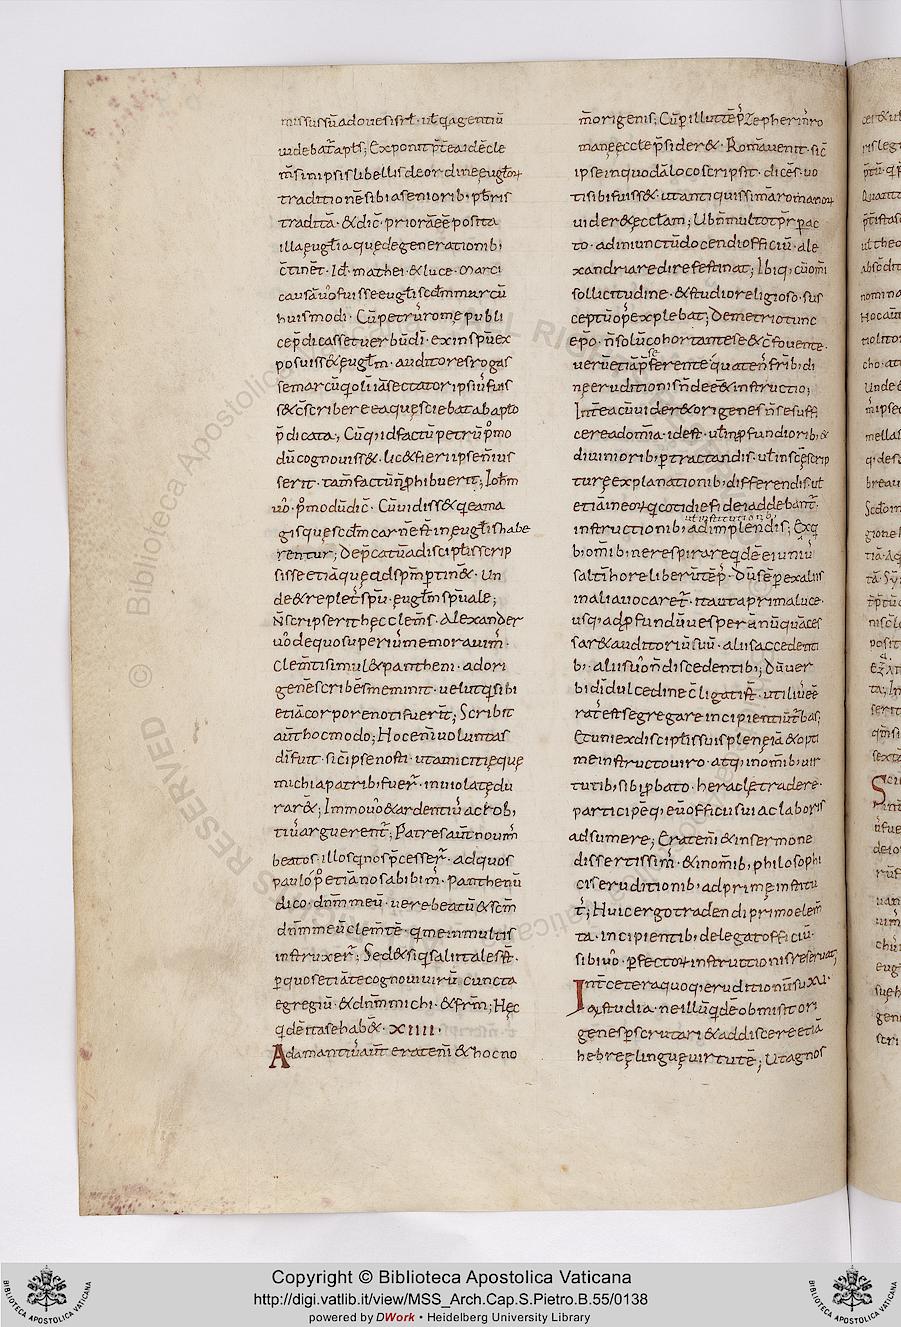 missussū adoues isrł · uł q̄a gentiū
uidebat̄ apłs ; Exponit p̄t̄ea idē cle
m̄s in ipsis libellis de ordine euglıoꝝ
traditionē sibi a seniorib; pb̄ris
tradita · & dic̄ · priora eē̄ posita
illa euglia que de generationib;
c̄tinēt · Id · mathei · & luce · Marci
causā ūo fuisse eugli scd̄m marcū
huiusmodi · Cū petrus rome publi
ce p̄dicasset uerbū dī · ex inspūex
posuiss& euglm · auditores rogas
se marcū qi oli iā sectator ipsius fuis
s& c̄scribere ea que sciebat ab apło
p̄dicata ; Cūq; id factū petrus p̊mo
dū cognouiss& · lic& fieri ipse n̄ ius
serit · tam̄ factū n̄ phibuerit ; Ioh̄m
ūo · p̊modū dic̄ · Cū uidiss& q ea ma
gis que scd̄m carnē st̄ in euglıis habe
rentur ; Dep̄catū a discipłis scrip
sisse etiā que ad spm̄ ptin& · Un
de & replet' spū · euglm̄ spuale ;
N̄ scripserit hec clem̄s · Alexander
ūo de quo superius memorauim̄ ·
Clem̄ti simul & pantheni · ad ori
genē scribēs meminit · uelut qi sibi
etiā corpore noti fuer̄t ; Scribit
aūt hoc modo ; Hoc enī uoluntas
dī fuit · sic̄ ipse nosti · ut amicitie que
michi a patrib; fuer̄ · inuiolate du
rar& ; Immo ūo & ardentius ac ꝓb;
tius arguerent̄ ; Patres aūt nouim̄
beatos illos qi nos p̄cesser̄ · ad quos
paulo p̊ etiā nos abibim̄ · Panthenū
dico · dn̄m meū · uere beatū & sc̄m
dn̄m meū clem̄tē · qi me in multis
instruxer̄ ; Sed & siqi s alii tales st̄ ·
p quos etiā te cognoui uirū cuncta
egregiū · & dn̄m michi · & frm̄ ; Hec
qidē ita se hab& · XIIII ·
Adamantius aūt erat enī & hoc no
m̄ origenis ; Cū p illut tēp' Zepherinus ro
mane eccłe p̄sider& · Romā uenit · sic̄
ipse in quodā loco scripsit · dicēs · uo
tis ibi fuiss& · ut antiquissimā romanoꝝ
uider& eccłam ; Ubi n̄ multo tp̄r pac
to · ad iniunctū docendi officiū · ale
xandria redire festinat ; Ibiq; cū om̄i
sollicitudine · & studio religioso · sus
ceptū op' explebat ; Demetrio tunc
ep̄o · n̄ solū cohortante se & c̄fouente ·
uerū etiā p̄ ferente quaten' frib; di
ne eruditionis n̄ dee& instructio ;
Int̄ea cū uider& origenes n̄ se suff
cere ad om̄ia · id est · ul in pfundiorib; &
diuiniorib; ptractandis · ul in sc̄e scrip
ture explanationib; differendis · ul
etiā in eoꝝ qi cotidie fidei addebant̄ ·
ul institutionib;
instructionib; adimplendis ; Ex qi
b; om̄ib; ne respirare qidē ei uni'
saltim hore liber̄ tēp' · Dū sēp ex aliis
in alia uocaret̄ · ita ut a prima luce ·
usq; ad pfundū uesperā nūquā ces
sar& auditoriū suū · aliis accedenti
b; · aliis ūo n̄ discedentib; ; Dū uer
bi dī dulcedine c̄ligati st̄ · utilius eē
rat' est segregare incipientiū t̄bas ;
Et uni ex discipłis suis plene iā & opti
me instructo uiro · atq; in om̄ib; uir
tutib; sibi pbato · heracle tradere ·
participēq; eū officii sui ac laboris
adsumere ; Erat enī & in sermone
dissertissim' · & in om̄ib; philosophi
cis eruditionib; ad prime institu
t' ; Huic ergo tradendi primo elem̄
ta · incipientib; delegat officiū ·
sibi ūo · pfectoꝝ instructionis reseruat ;
Int̄ cetera quoq; eruditionū sua XVI ·
rū studia · ne illū qidē obmisit ori
genes pscrutari & addiscere etiā
hebree lingue uirtutē ; Ut agnos
Copyright © Biblioteca Apostolica Vaticana
http://digi.vatlib.it/view/MSS_Arch.Cap.S.Pietro.B.55/0138
powered by DWork • Heidelberg University Library